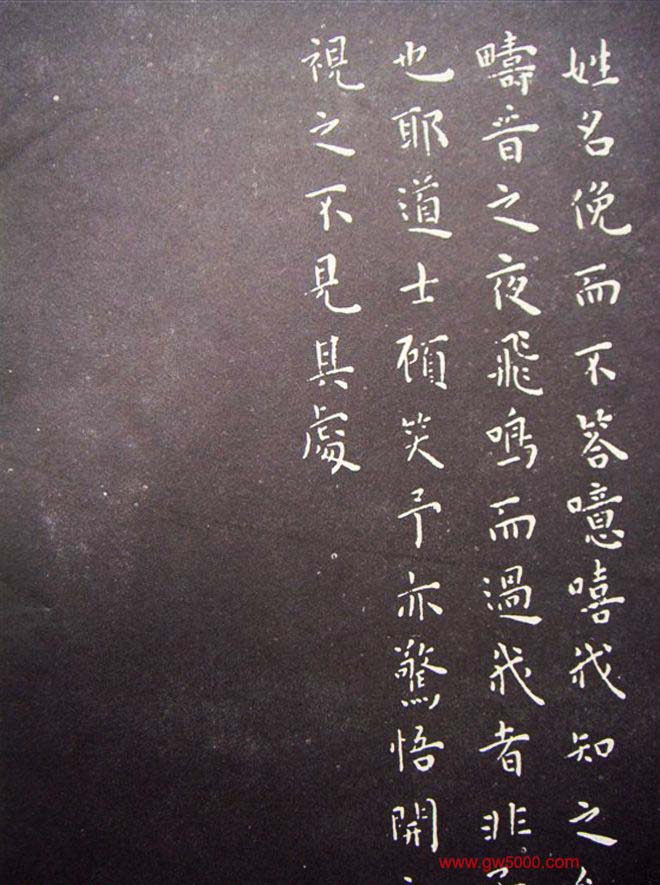 姓名俛而不答噫嘻我知之
疇昔之夜飛鳴而過我者非
也耶道士顧笑予亦驚悟開
視之不見其處
www.gw5000.com